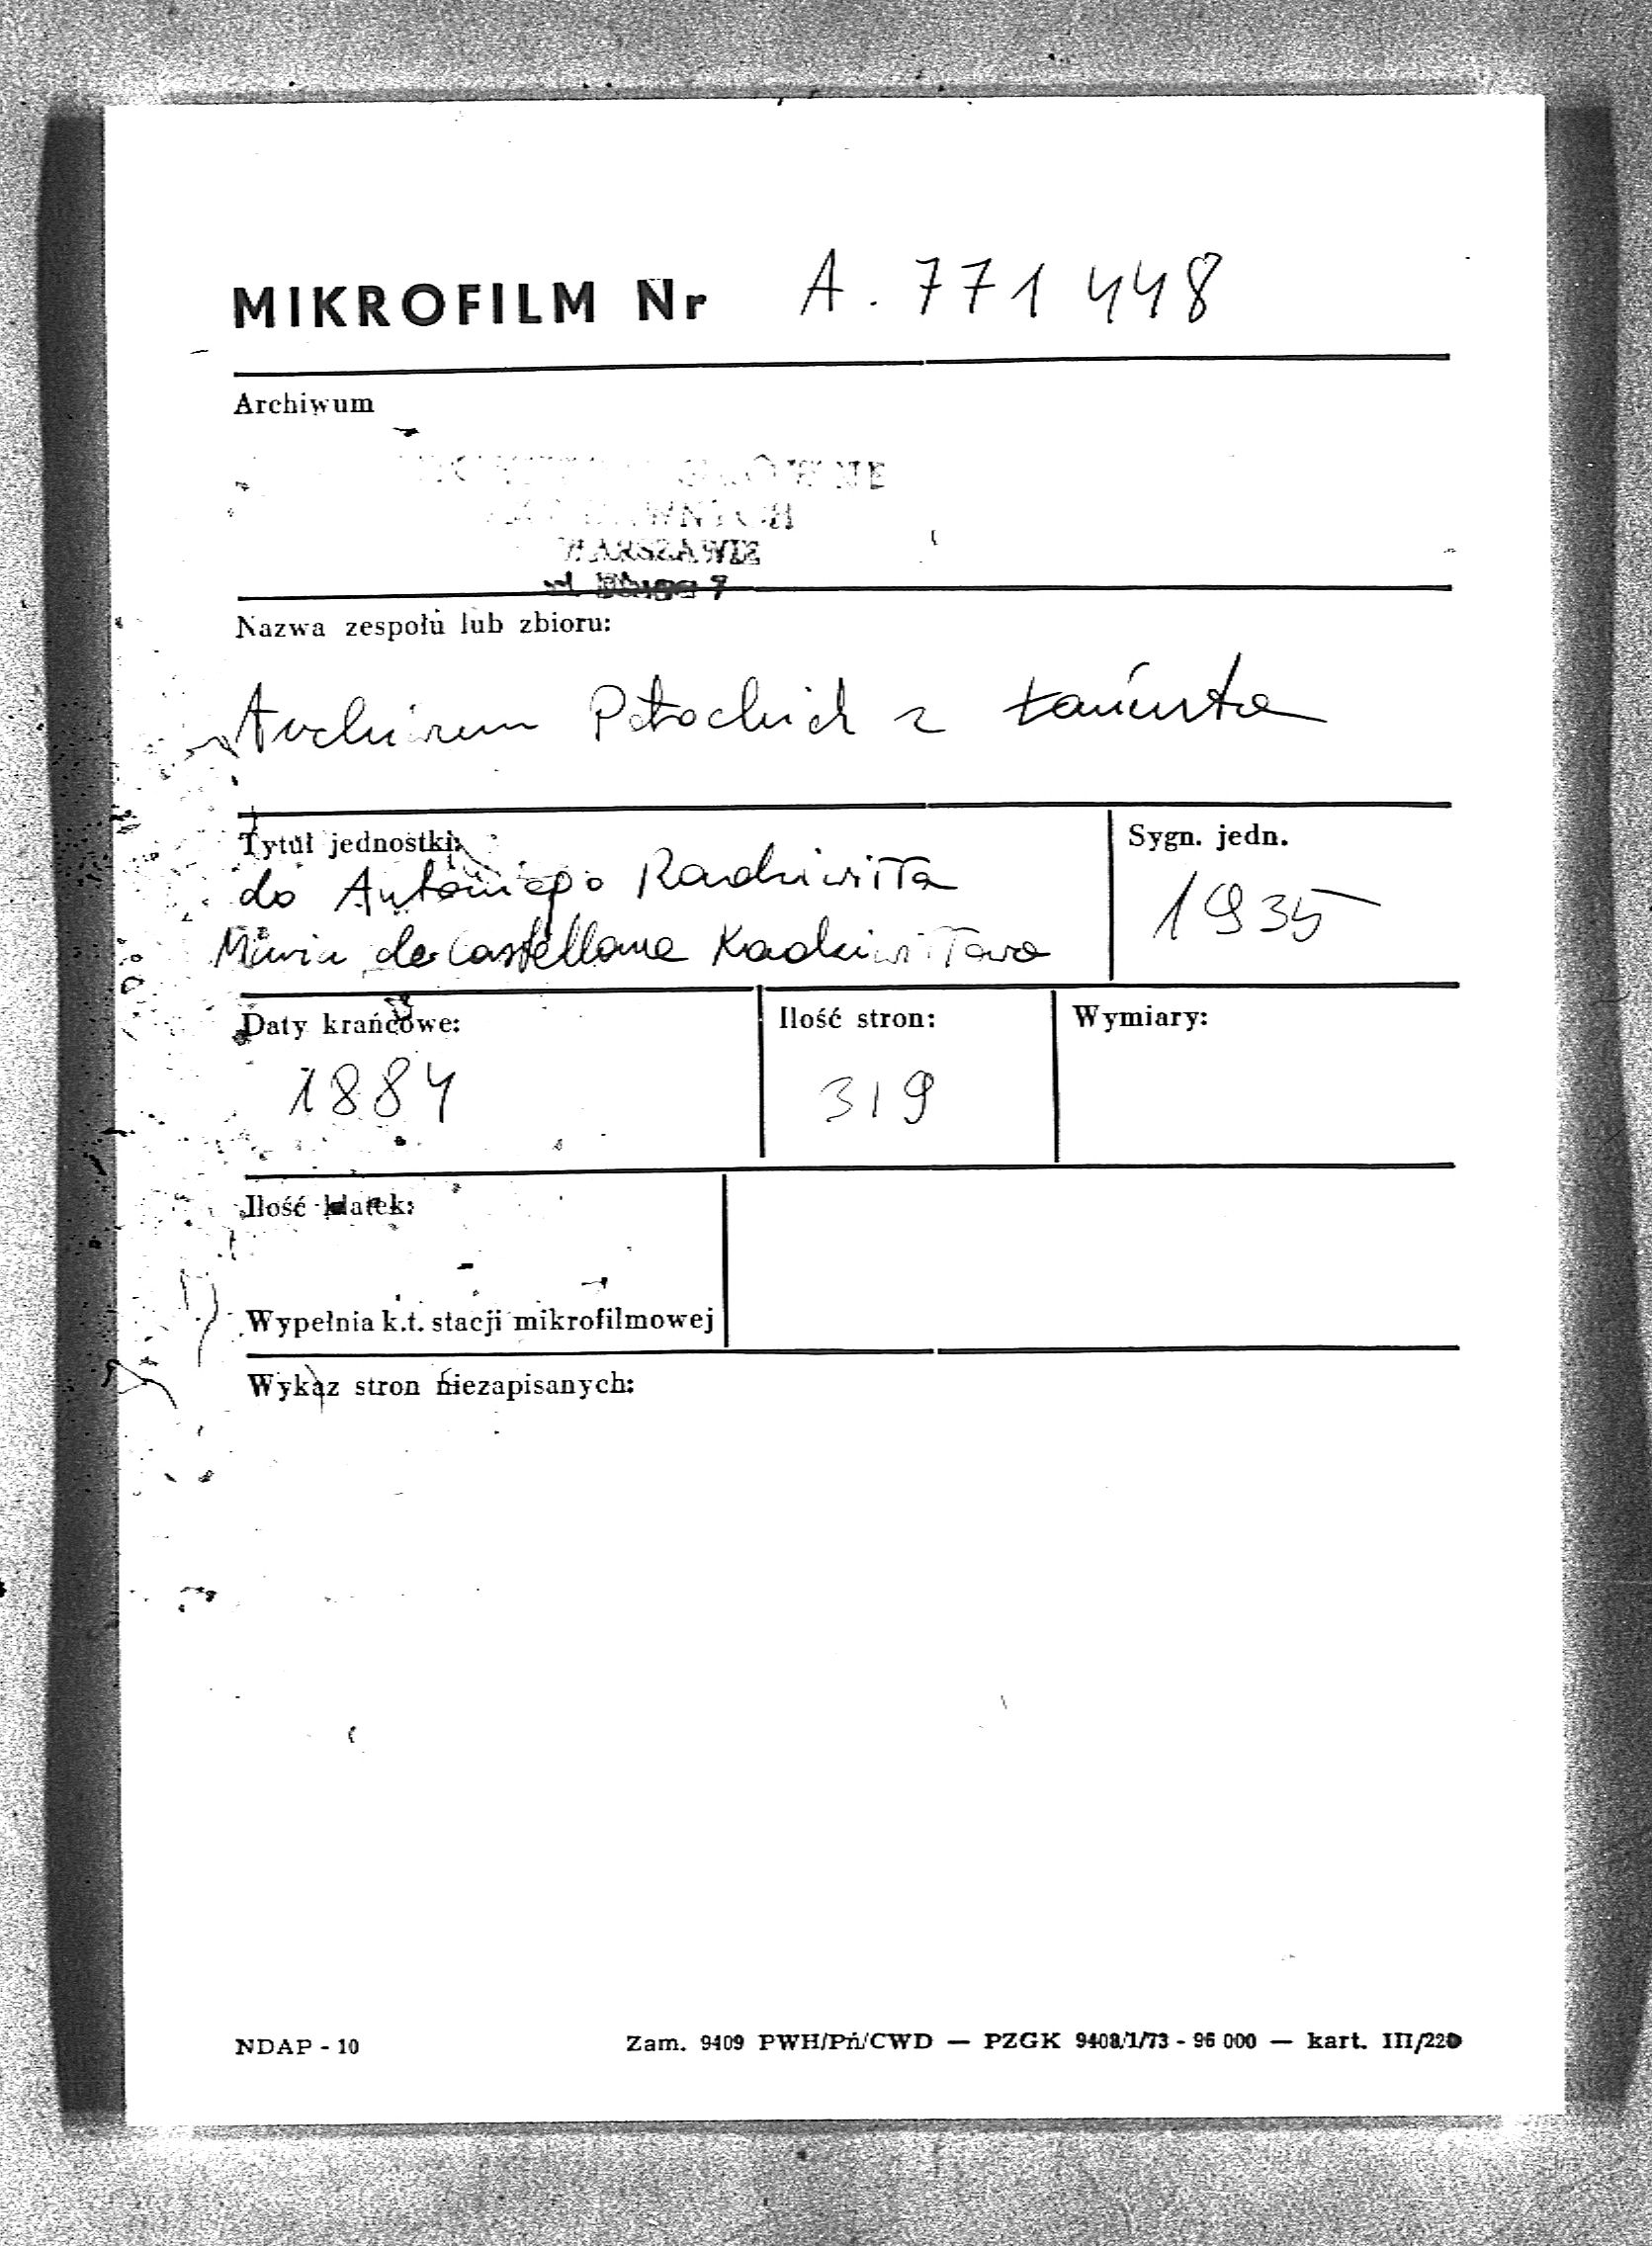 MIKROFILM Nr A. 771 448
Archiwum
WARSZAWIE
Nazwa zespołu lub zbioru:
Archiwum Potockich z Łańcuta
Tytuł jednostki: Sygn. jedn.
do Antoniego Radziwiłła 1935
Maria de Castellane Radziwiłłowa
Daty krańcowe: Ilość stron: Wymiary:
1884 319
Ilość klatek:
Wypełnia k.t. stacji mikrofilmowej
Wykaz stron niezapisanych:
NDAP - 10 Zam. 9409 PWH/Pń/CWD — PZGK 9408/1/73 - 96 000 — kart. III/220